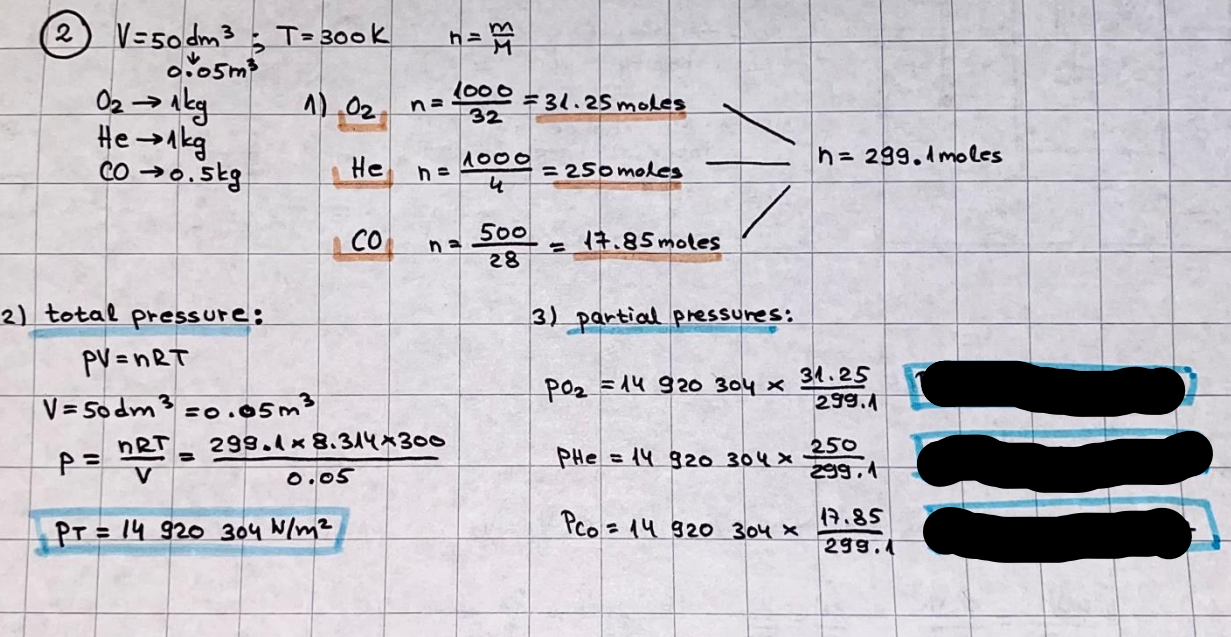 2 V=50dm³ ; T=300K n=m/M
↓
0.05m³
O₂ → 1kg
He → 1kg
CO → 0.5kg
1) O₂ n=1000/32 = 31.25 moles
He n=1000/4 = 250 moles
CO n=500/28 = 17.85 moles
n= 299.1 moles
2) total pressure:
pV=nRT
V=50dm³=0.05m³
p=nRT/V=299.1×8.314×300/0.05
PT=14 920 304 N/m²
3) partial pressures:
pO₂=14 920 304 × 31.25/299.1
pHe=14 920 304 × 250/299.1
PCO=14 920 304 × 17.85/299.1